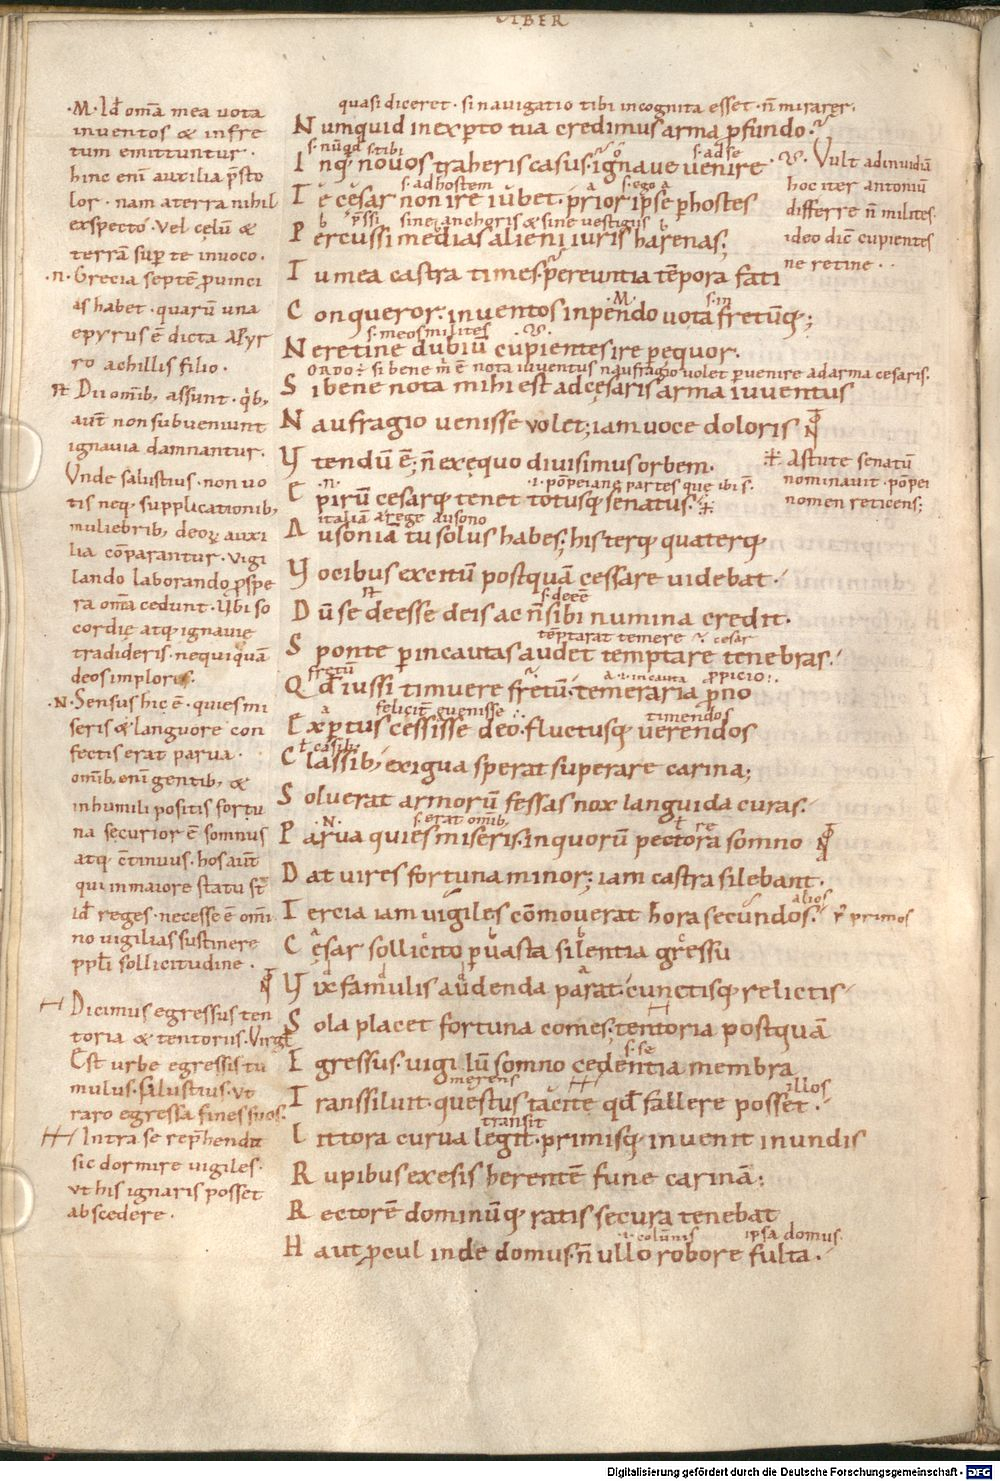 LIBER
·M· Id̄ om̄a mea uota
inuentos & infre
tum emittuntur.
hinc eni auxilia p̄sto
lor. nam a terra nihil
exspecto. Vel celū &
terrā sup te inuoco.
·n· Grecia septē puinci
as habet. quarū una
epyrus ē dicta a pyr
ro achillis filio.
Dii omīb; assunt. q̇b;
aut̄ non subueniunt
ignauia damnantur.
Vnde salustius. non uo
tis neq; supplicationib;
muliebrib; deoꝝ auxi
lia cōparantur. vigi
lando laborando pspe
ra om̄a cedunt. Vbi so
cordię atq; ignauię
tradideris. nequiquā
deos implores.
·N· Sensus hic ē. quies mi
seris & languore con
fectis erat parua.
omīb; eni gentib; &
in humili positis fortu
na securior ē somnus
atq; c̄tinuus. hos aut̄
qui in maiore statu st̄
id̄ reges. necesse ē omī
no uigilias sustinere
ppt̄ sollicitudine.
Dicimus egressus ten
toria & tentoriis. Virgł
Est urbe egressis tu
mulus. salustius. vt
raro egressa fines suos.
Intra se rep̄hendit
sic dormire uigiles.
vt his ignaris posset
abscedere.
quasi diceret. si nauigatio tibi incognita esset. n̄ mirarer.
N umquid inexperto tua credimus arma pfundo.
s. nūqd s. tibi s. ad se
I nq; nouos traheris casus. ignaue uenire
s. ad hostem s. ego
T e cęsar non ire iubet. prior ipse p hostes
p̄ssi sine anchoris & sine uestigiis
P ercussi medias alieni iuris harenas;
T u mea castra times. pereuntia tēpora fati
·M· s. in
C onqueror. in uentos inpendo uota fretūq;;
s. meos milites
N e retine dubiū cupientes ire p equor.
ORDO ÷ si bene m̄ ē nota iuuentus naufragio uolet puenire ad arma cesaris.
S i bene nota mihi est ad cęsaris arma iuuentus
N aufragio uenisse uolet; iam uoce doloris
V tendū ē; n̄ exęquo diuisimus orbem.
·n· ·i· pōpeiane partes que ibi s̄.
E pirū cesarq; tenet totusq; senatus.
italiā a rege ausono
A usoniā tu solus habes; his terq; quaterq;
V ocibus excitū postquā cessare uidebat.
s. deeē
D ū se deesse deis ac n̄ sibi numina credit.
tēptarat temere cesar
S ponte p incautas audet temptare tenebras.
fretū ·i· incauta ppicio
Q d̄ iussi timuere fretū. temeraria p̄no
felicit̄ euenisse timendos
E xptus cessisse deo. fluctusq; uerendos
C lassib; exigua sperat superare carina;
S oluerat armorū fessas nox languida curas.
·N· s. erat omīb;
P arua quies miseris. in quorū pectora somno
D at uires fortuna minor; iam castra silebant.
alios
T ercia iam uigiles cōmouerat hora secundos. primos
C ęsar sollicito p uasta silentia gressu
V ix famulis audenda parat. cunctisq; relictis
S ola placet fortuna comes; tentoria postquā
s. se
E gressus. uigilū somno cedentia membra
merens illos
T ranssiluit. questus tacite qd̄ fallere posset.
transit
L ittora curua legit. primisq; inuenit in undis
R upibus exesis herentē fune carinā;
R ectorē dominūq; ratis secura tenebat
·i· colūnis ipsa domus.
H aut pcul inde domus. n̄ ullo robore fulta.
Vult ad inuidiā
hoc iter antoniū
differre n̄ milites.
ideo dic̄ cupientes
ne retine.
Astute senatū
nominauit. pōpei
nomen reticens;
Digitalisierung gefördert durch die Deutsche Forschungsgemeinschaft - DFG